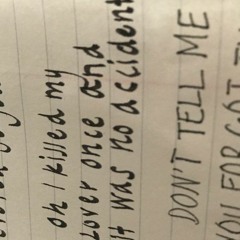 oh I killed my
lover once and
it was no accident
DON'T TELL ME
YOU FORGOT